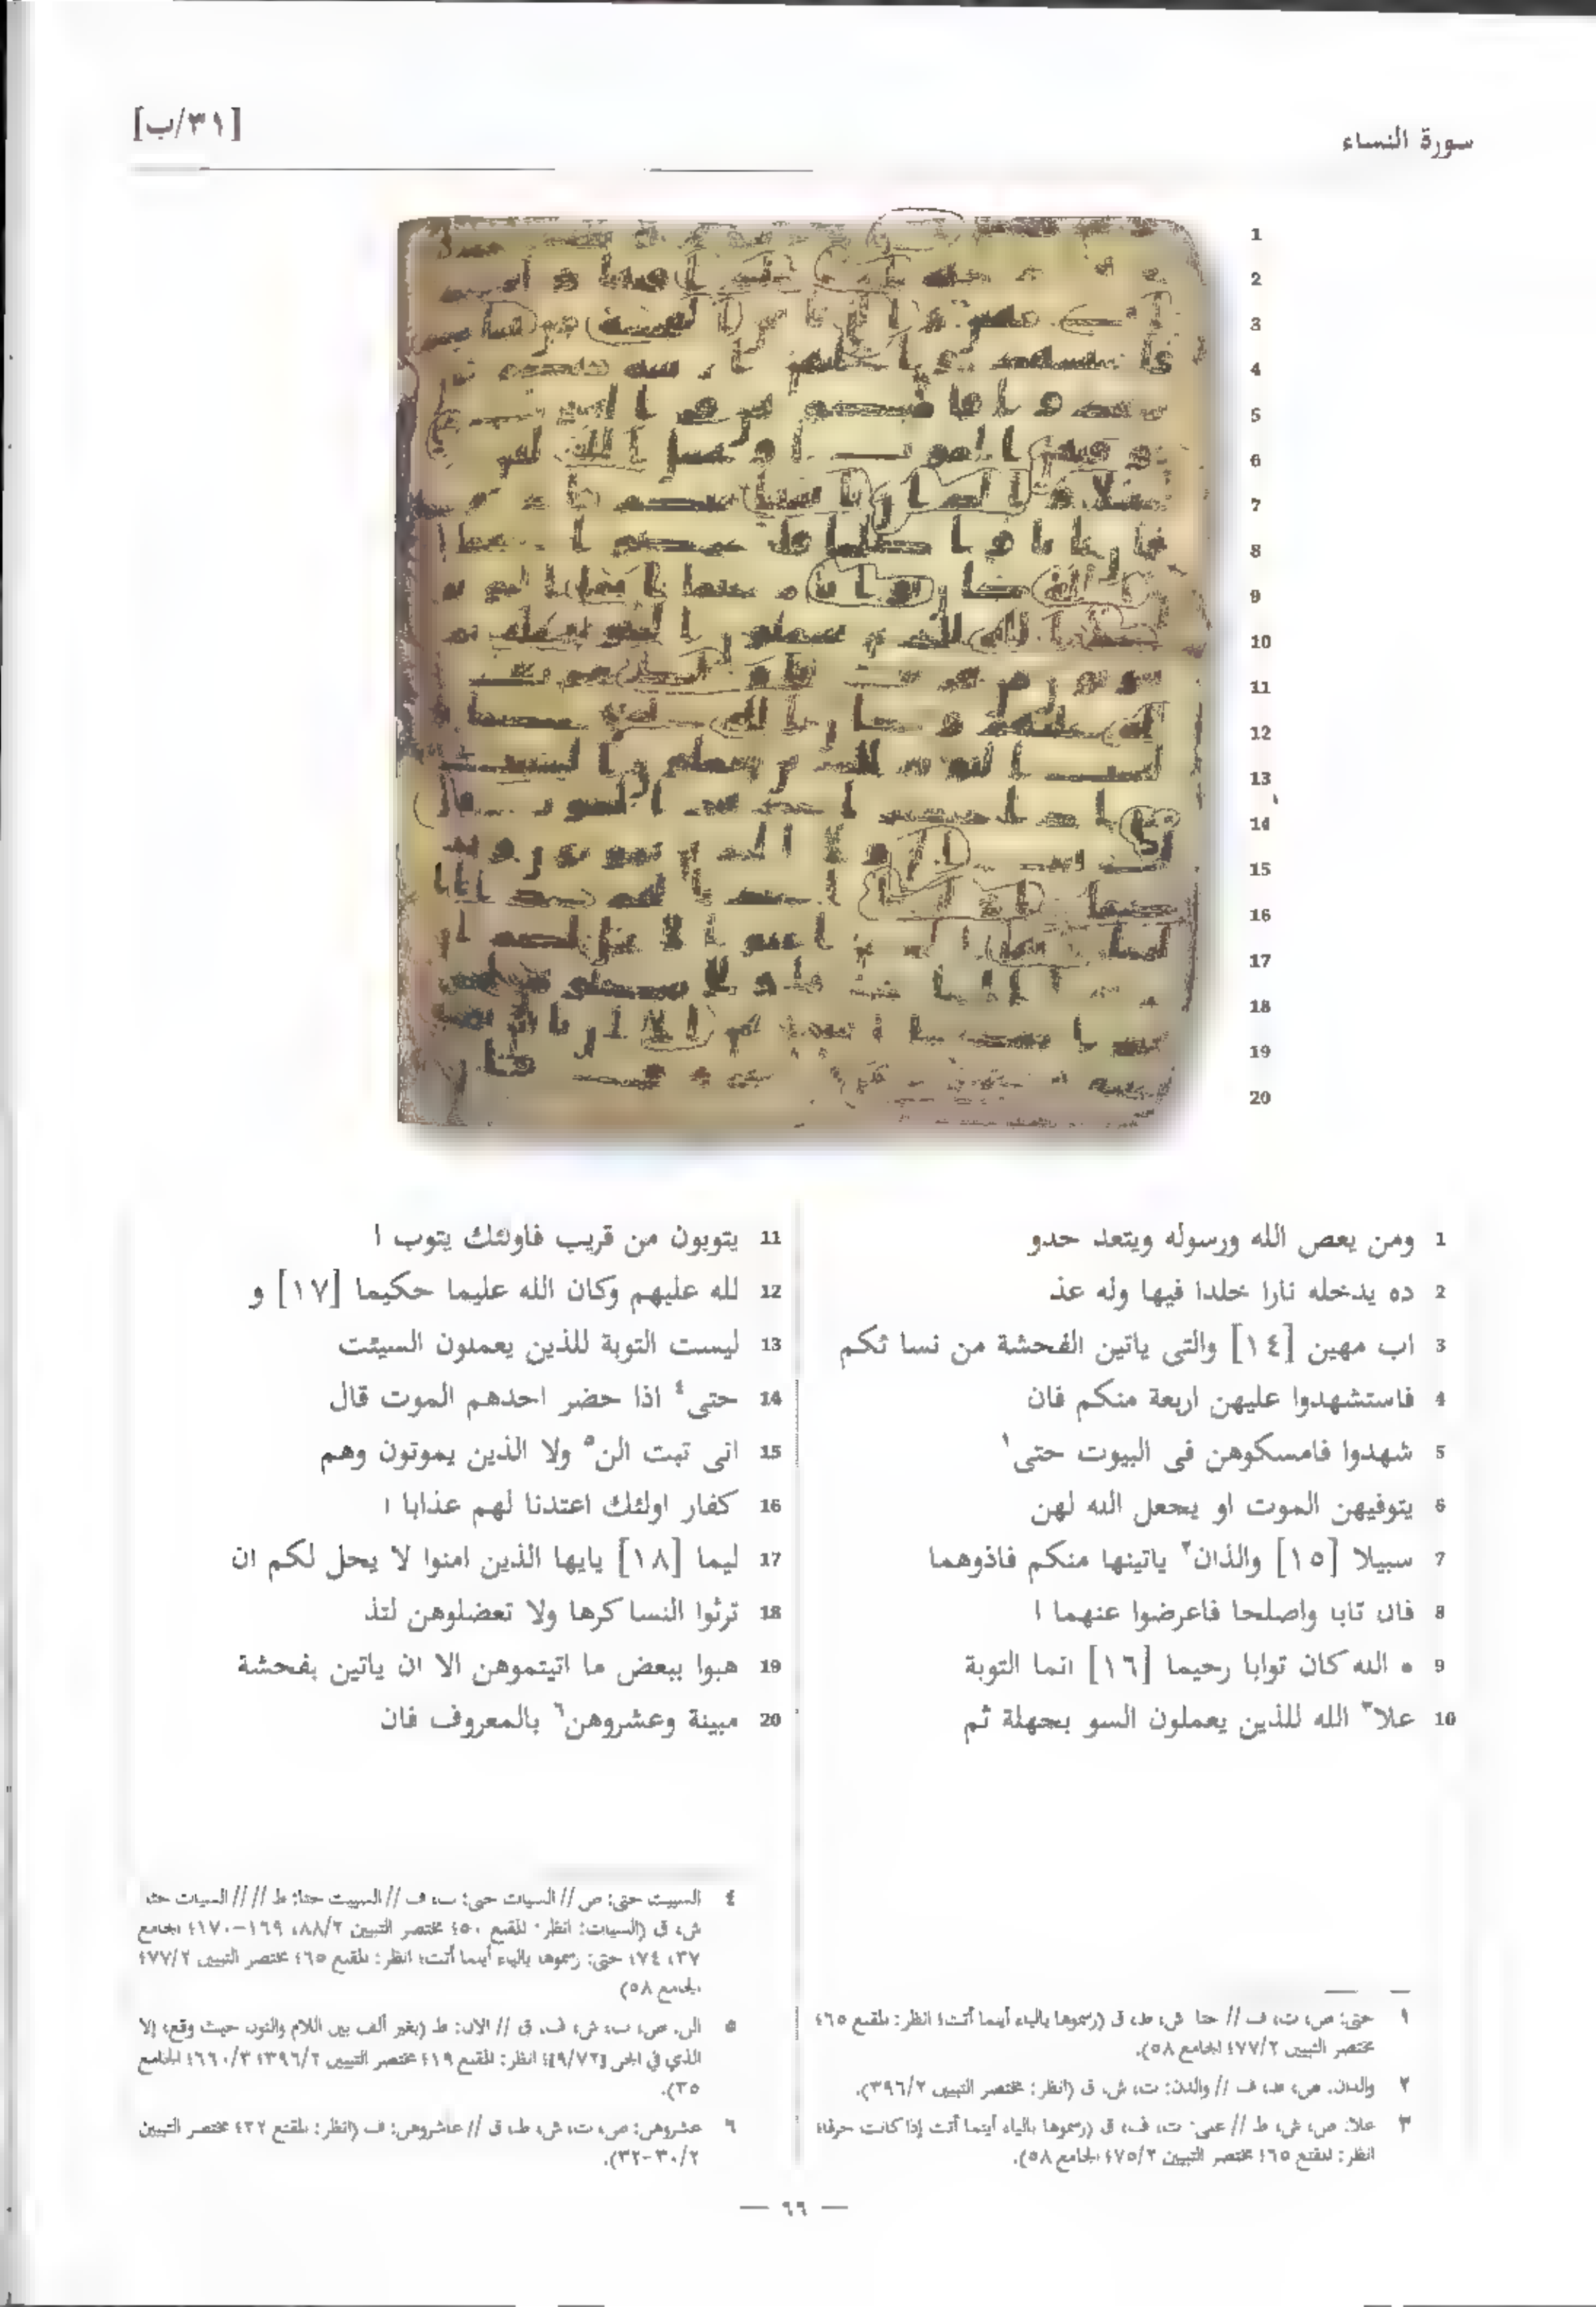 سورة النساء
[٣١/ب]
1
2
3
4
5
6
7
8
9
10
11
12
13
14
15
16
17
18
19
20
1 ومن يعص الله ورسوله ويتعد حدو
2 ده يدخله نارا خلدا فيها وله عذ
3 اب مهين [١٤] والتى ياتين الفحشة من نسا ئكم
4 فاستشهدوا عليهن اربعة منكم فان
5 شهدوا فامسكوهن فى البيوت حتى١
6 يتوفيهن الموت او يجعل الله لهن
7 سبيلا [١٥] والذان٢ ياتينها منكم فاذوهما
8 فان تابا واصلحا فاعرضوا عنهما ا
9 ه الله كان توابا رحيما [١٦] انما التوبة
10 علا٣ الله للذين يعملون السو بجهلة ثم
11 يتوبون من قريب فاولئك يتوب ا
12 لله عليهم وكان الله عليما حكيما [١٧] و
13 ليست التوبة للذين يعملون السيئت
14 حتى٤ اذا حضر احدهم الموت قال
15 انى تبت الن٥ ولا الذين يموتون وهم
16 كفار اولئك اعتدنا لهم عذابا ا
17 ليما [١٨] يايها الذين امنوا لا يحل لكم ان
18 ترثوا النسا كرها ولا تعضلوهن لتذ
19 هبوا ببعض ما اتيتموهن الا ان ياتين بفحشة
20 مبينة وعشروهن٦ بالمعروف فان
١ حتى: ص، ت، ف // حتا ش، ط، ق (رسموها بالياء أينما أتت؛ انظر: المقنع ٦٥؛
مختصر التبيين ٧٧/٢؛ الجامع ٥٨).
٢ والذان: ص، ط، ف // والذن: ت، ش، ق (انظر: مختصر التبيين ٣٩٦/٢).
٣ علا: ص، ش، ط // على: ت، ف، ق (رسموها بالياء أينما أتت إذا كانت حرفا؛
انظر: المقنع ٦٥؛ مختصر التبيين ٧٥/٢؛ الجامع ٥٨).
٤ السييت حتى: ص // السيات حتى: ت، ف // السييت حتا: ط // // السيات حتا
ش، ق (السيات: انظر: المقنع ٥٠؛ مختصر التبيين ٨٨/٢، ١٦٩-١٧٠؛ الجامع
٣٧، ٧٤؛ حتى: رسموها بالياء أينما أتت؛ انظر: المقنع ٦٥؛ مختصر التبيين ٧٧/٢؛
الجامع ٥٨)
٥ الن: ص، ت، ش، ف، ق // الان: ط (بغير ألف بين اللام والنون حيث وقع، إلا
الذي في الجن [٩/٧٢]؛ انظر: المقنع ١٩؛ مختصر التبيين ٣٩٦/٢؛ ٦٦٠/٣؛ الجامع
٣٥).
٦ عشروهن: ص، ت، ش، ط، ق // عاشروهن: ف (انظر: المقنع ٢٢؛ مختصر التبيين
٣٠/٢-٣٢).
— ٦٦ —